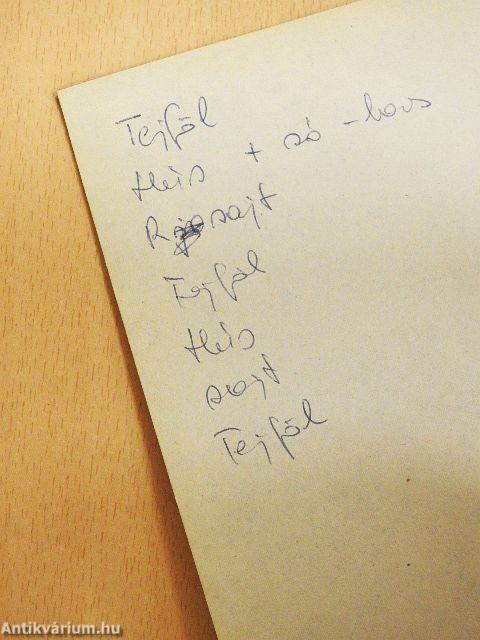 Tejföl
Hús + só - bors
R sajt
Tejföl
Hús
sajt
Tejföl
Antikvárium.hu